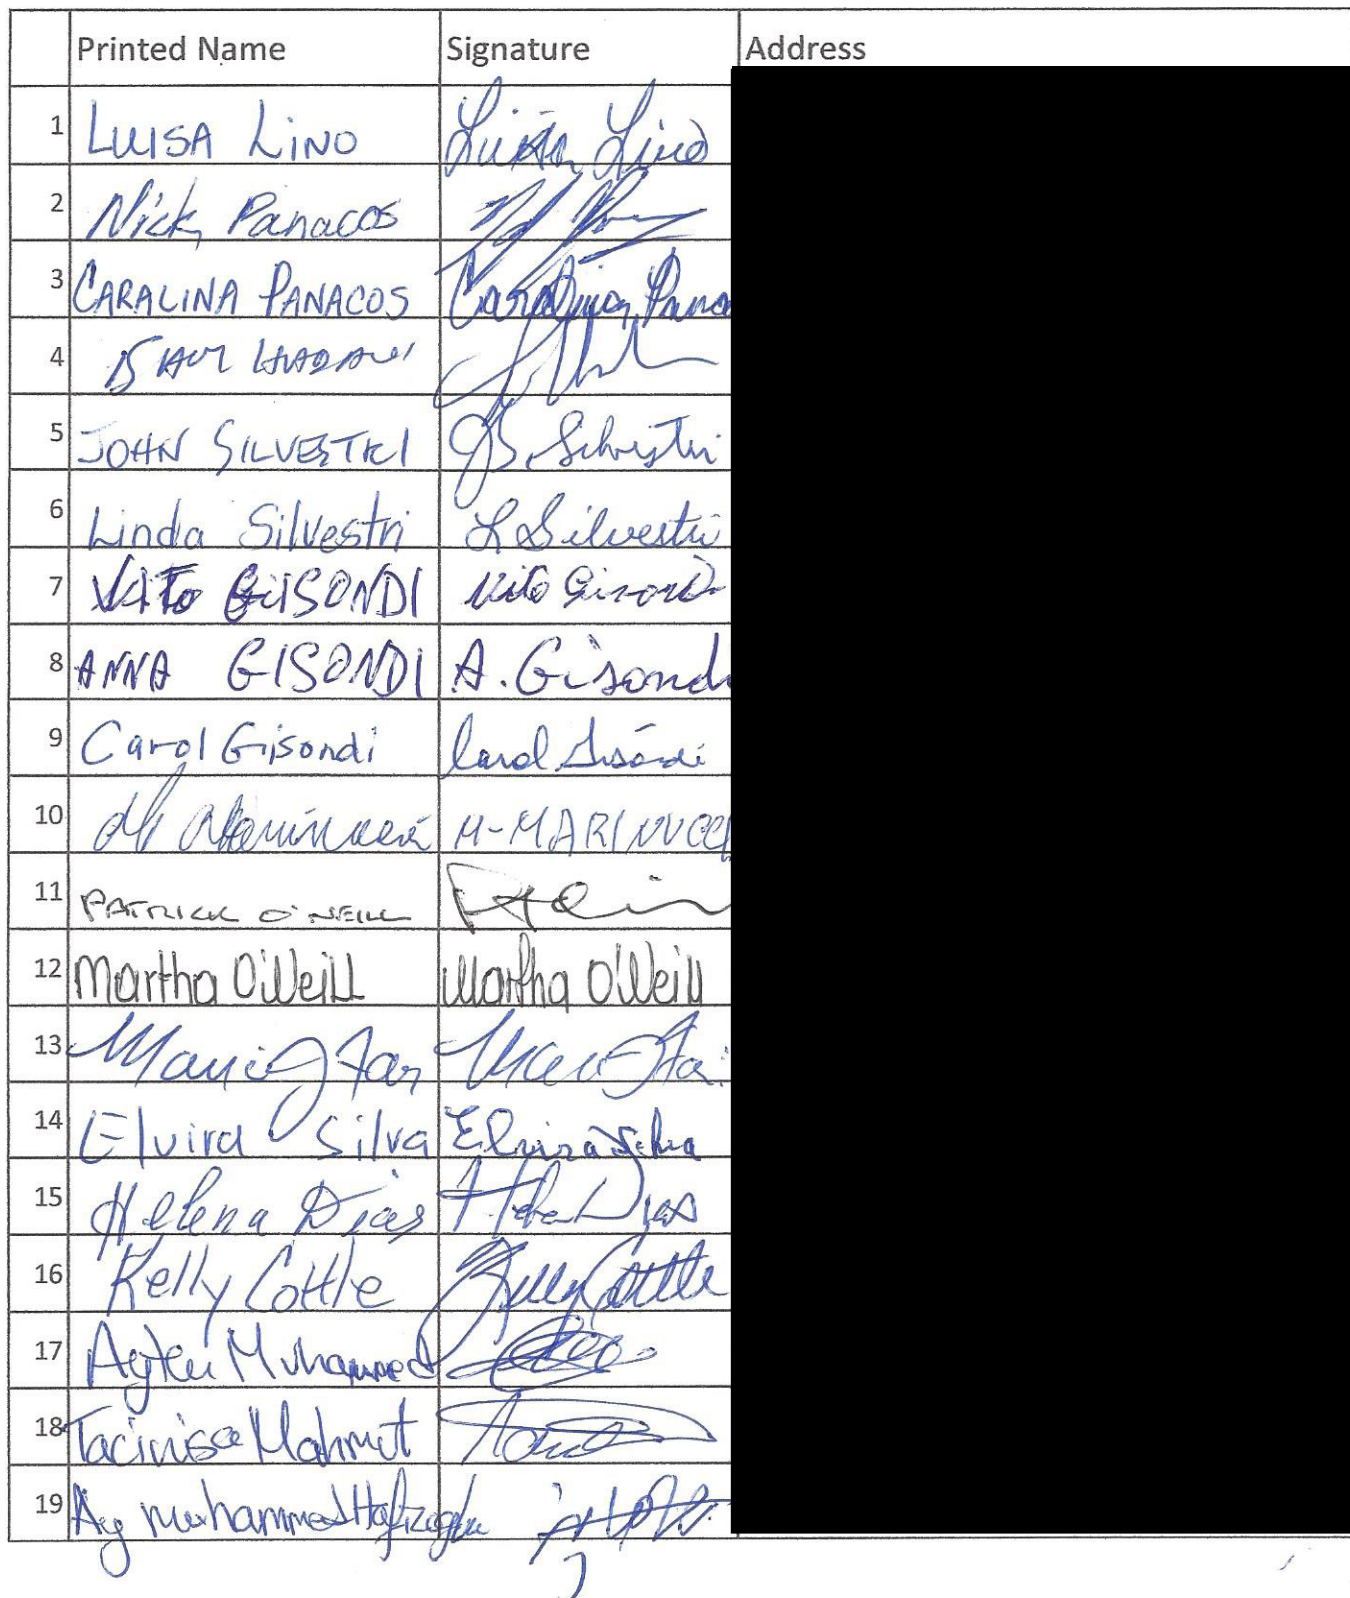 Printed Name Signature Address
1 LUISA LINO Luisa Lino
2 Nick Panacos
3 CARALINA PANACOS Caralina Pana
4
5 JOHN SILVESTRI J Silvestri
6 Linda Silvestri L Silvestri
7 VITO GISONDI Vito Gisondi
8 ANNA GISONDI A. Gisondi
9 Carol Gisondi Carol Gisondi
10 M Marinucci M-MARINUCCI
11 PATRICK O'NEILL
12 Martha O'Neill Martha O'Neill
13
14 Elvira Silva Elvira Silva
15 Helena Dias Helena Dias
16 Kelly Cottle Kelly Cottle
17 Muhammed
18 Mahmut
19 Ay muhammed